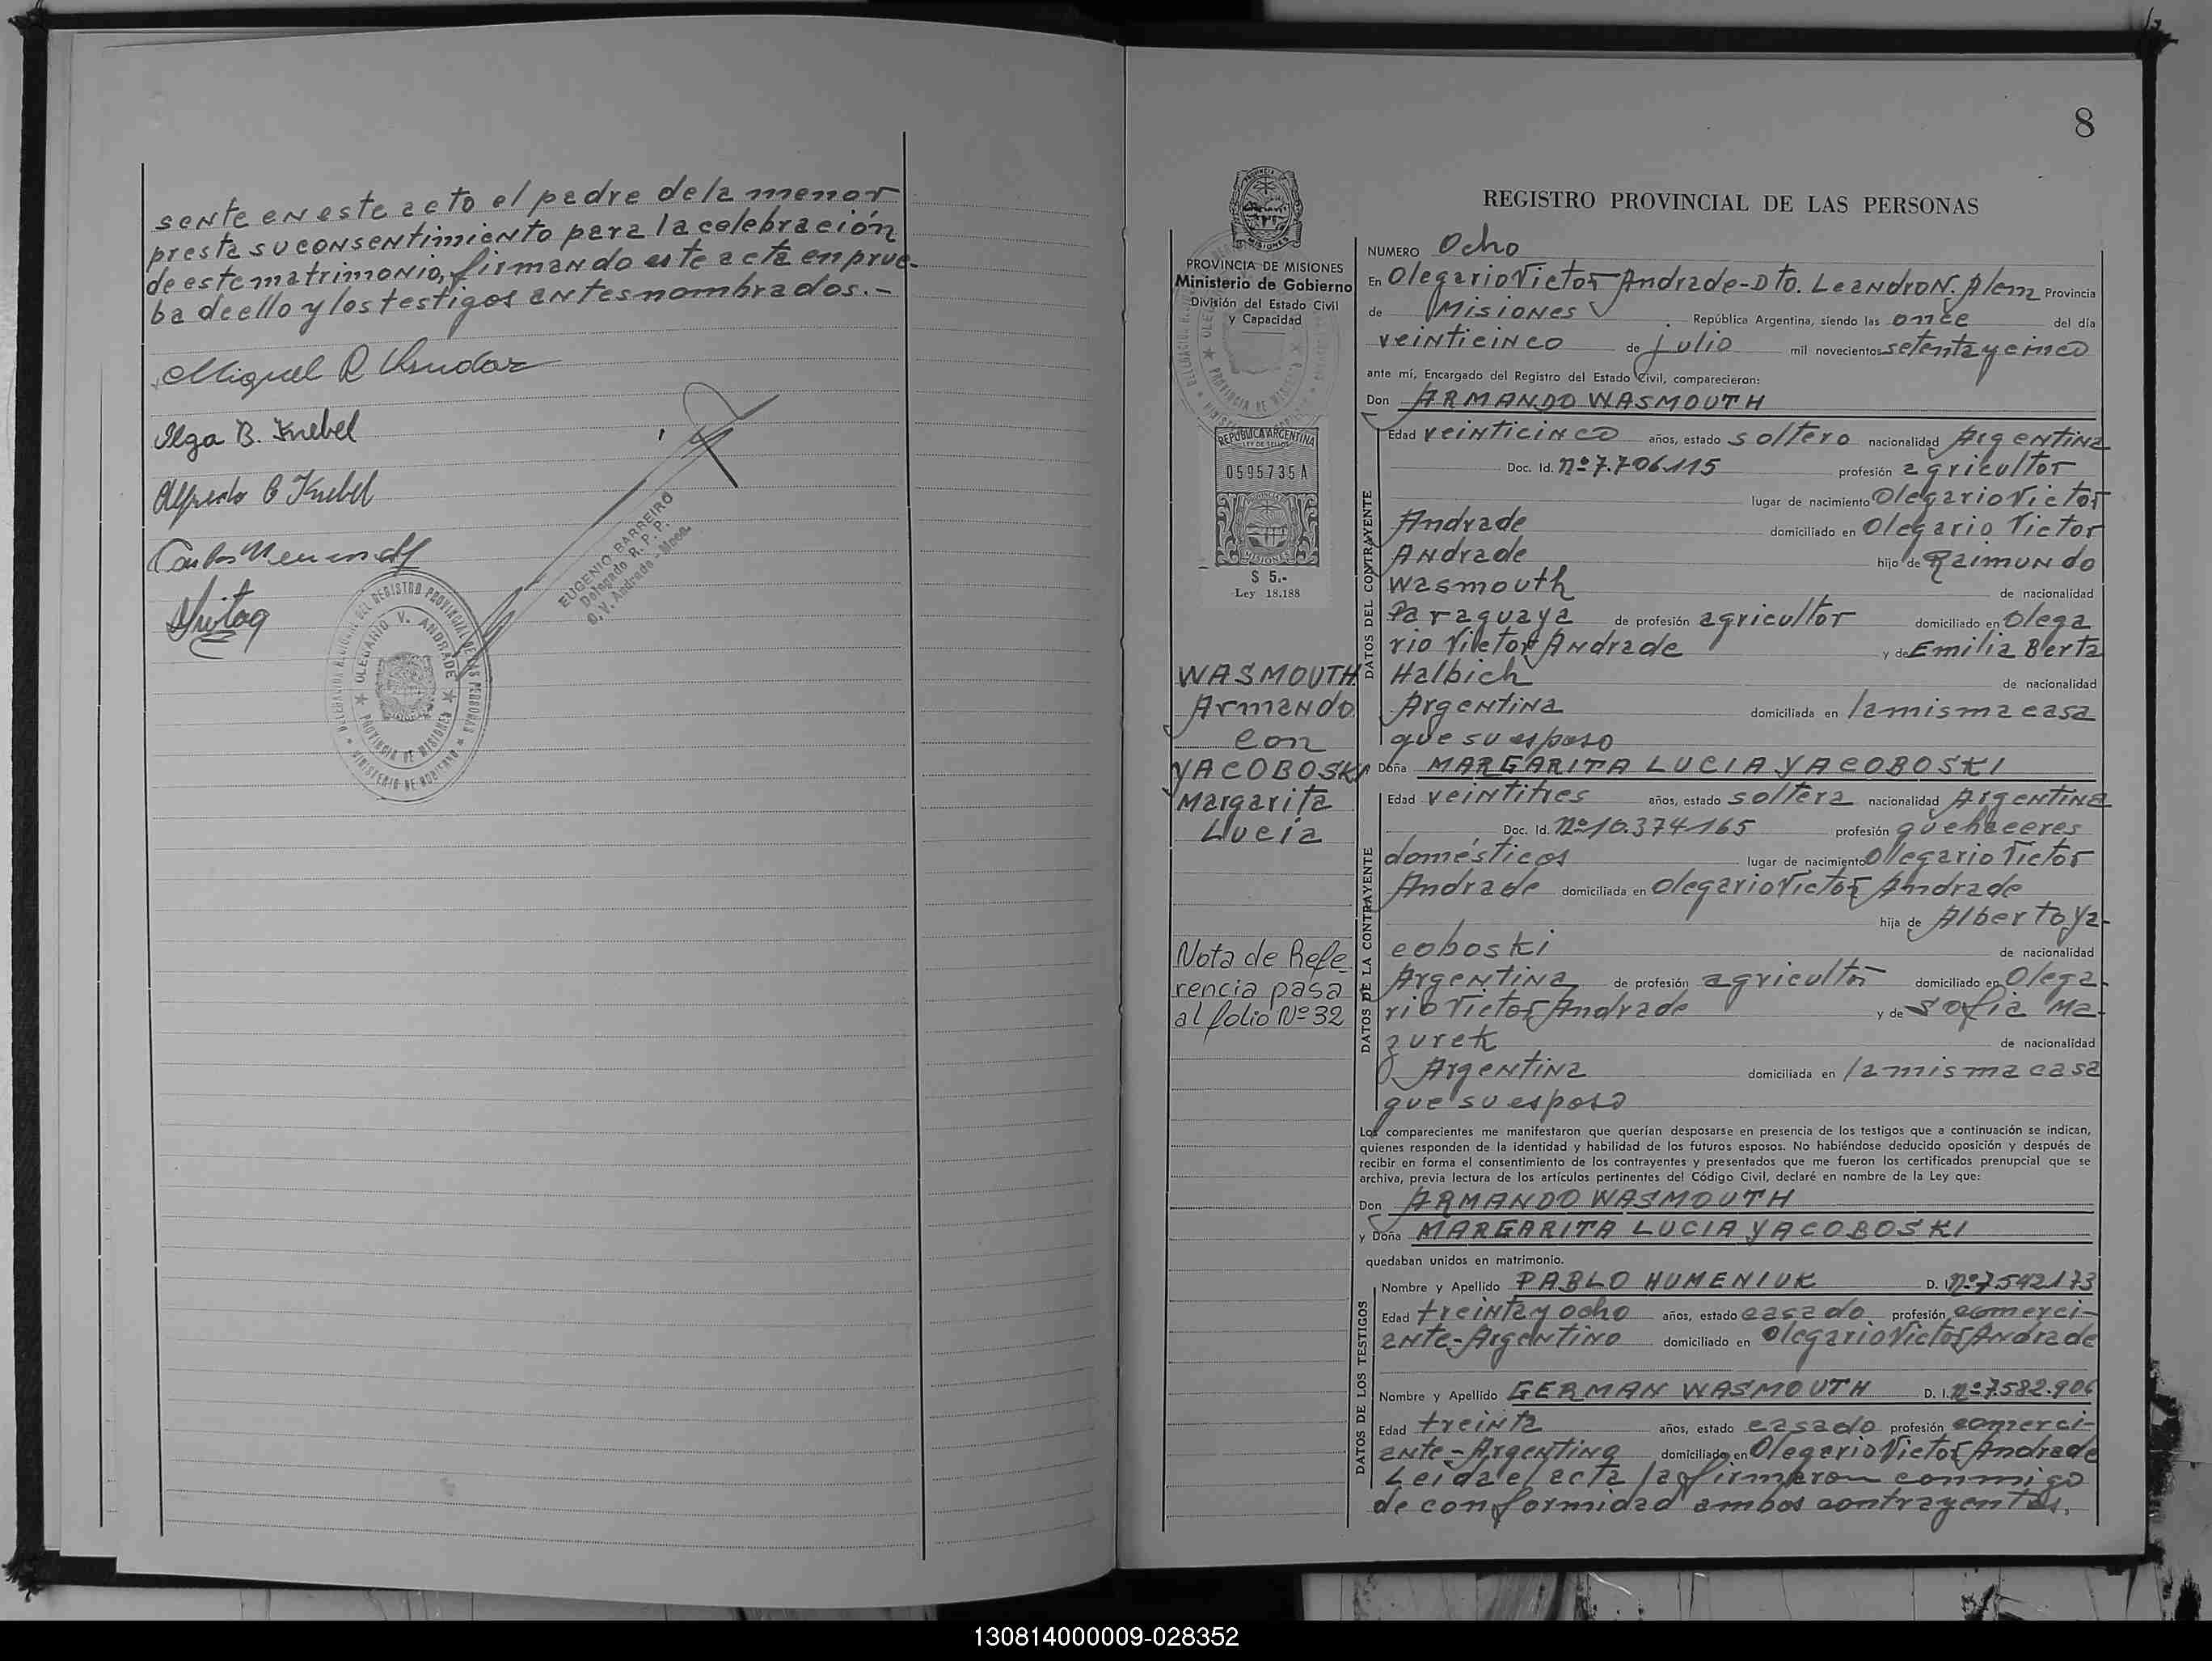 sente en este acto el padre de la menor
presta su consentimiento para la celebración
de este matrimonio, firmando este acta en prue-
ba de ello y los testigos antes nombrados.-
Miguel R
Olga B. Knebel
Alfredo C Knebel
EUGENIO BARREIRO
Delegado R. P. P.
O. V. Andrade - Mnes.
DELEGACION REGIONAL DEL REGISTRO PROVINCIAL DE LAS PERSONAS
OLEGARIO V. ANDRADE
PROVINCIA DE MISIONES
MINISTERIO DE GOBIERNO
8
PROVINCIA DE MISIONES
Ministerio de Gobierno
División del Estado Civil
y Capacidad
REPUBLICA ARGENTINA
LEY DE SELLOS
0595735A
MISIONES
$ 5.-
Ley 18.188
WASMOUTH
Armando
con
YACOBOSKI
Margarita
Lucia
Nota de Refe
rencia pasa
al folio Nº 32
REGISTRO PROVINCIAL DE LAS PERSONAS
NUMERO Ocho
En Olegario Victor Andrade-Dto. Leandro N. Alem Provincia
de Misiones República Argentina, siendo las once del día
veinticinco de julio mil novecientos setenta y cinco
ante mí, Encargado del Registro del Estado Civil, comparecieron:
Don ARMANDO WASMOUTH
DATOS DEL CONTRAYENTE
Edad veinticinco años, estado soltero nacionalidad Argentina
Doc. Id. nº 7.706.115 profesión agricultor
lugar de nacimiento Olegario Victor
Andrade domiciliado en Olegario Victor
Andrade hijo de Raimundo
Wasmouth de nacionalidad
Paraguaya de profesión agricultor domiciliado en Olega
rio Victor Andrade y de Emilia Berta
Halbich de nacionalidad
Argentina domiciliada en la misma casa
que su esposo
Doña MARGARITA LUCIA YACOBOSKI
DATOS DE LA CONTRAYENTE
Edad veintitres años, estado soltera nacionalidad Argentina
Doc. Id. nº 10.374165 profesión quehaceres
domésticos lugar de nacimiento Olegario Victor
Andrade domiciliada en Olegario Victor Andrade
hija de Alberto Ya-
coboski de nacionalidad
Argentina de profesión agricultor domiciliado en Olega-
rio Victor Andrade y de Sofia Ma-
zurek de nacionalidad
Argentina domiciliada en la misma casa
que su esposo
Los comparecientes me manifestaron que querían desposarse en presencia de los testigos que a continuación se indican,
quienes responden de la identidad y habilidad de los futuros esposos. No habiéndose deducido oposición y después de
recibir en forma el consentimiento de los contrayentes y presentados que me fueron los certificados prenupcial que se
archiva, previa lectura de los artículos pertinentes del Código Civil, declaré en nombre de la Ley que:
Don ARMANDO WASMOUTH
y Doña MARGARITA LUCIA YACOBOSKI
quedaban unidos en matrimonio.
DATOS DE LOS TESTIGOS
Nombre y Apellido PABLO HUMENIUK D. I. nº 7.542173
Edad treinta y ocho años, estado casado profesión comerci-
ante-Argentino domiciliado en Olegario Victor Andrade
Nombre y Apellido GERMAN WASMOUTH D. I. nº 7.582.906
Edad treinta años, estado casado profesión comerci-
ante-Argentino domiciliado en Olegario Victor Andrade
Leida el acta la firmaron conmigo
de conformidad ambos contrayentes,
130814000009-028352